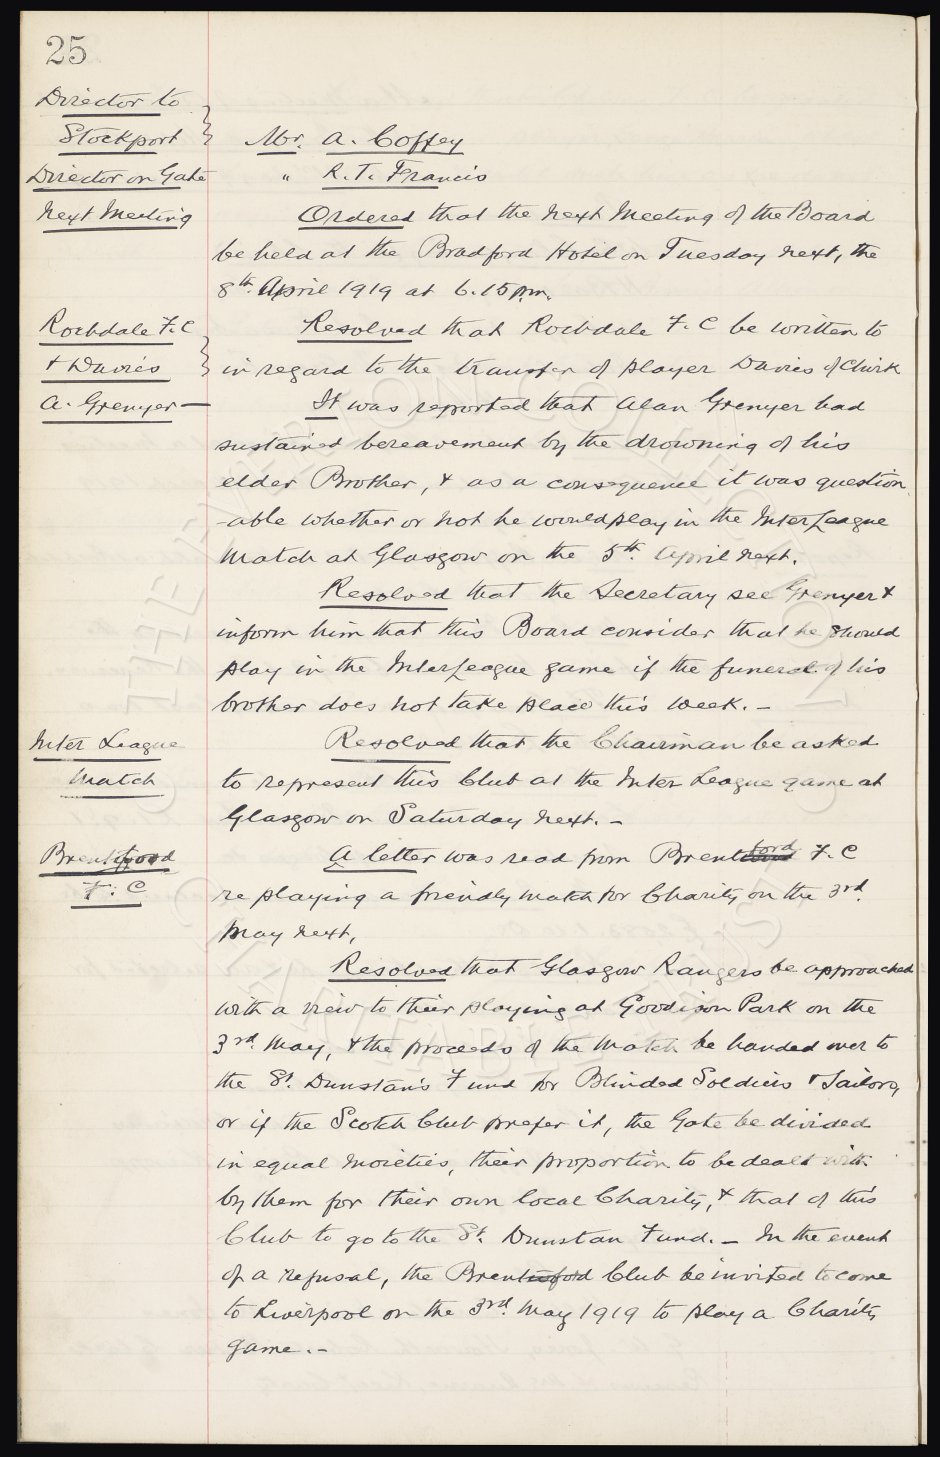 25
Director to
Stockport } Mr. A. Coffey
Director on Gate " R. T. Francis
Next Meeting Ordered that the next Meeting of the Board
be held at the Bradford Hotel on Tuesday next, the
8th. April 1919 at 6.15 p.m.
Rochdale F.C Resolved that Rochdale F.C be written to
& Davies } in regard to the transfer of player Davies of Chirk
A. Grenyer — It was reported that Alan Grenyer had
sustained bereavement by the drowning of his
elder Brother, & as a consequence it was question
-able whether or not he would play in the InterLeague
Match at Glasgow on the 5th. April next.
Resolved that the Secretary see Grenyer &
inform him that this Board consider that he should
play in the InterLeague game if the funeral of his
brother does not take place this week. -
Inter League Resolved that the Chairman be asked
Match to represent this Club at the Inter League game at
Glasgow on Saturday next. -
Brentford A letter was read from Brentford F.C
F.C re playing a friendly match for Charity on the 3rd.
May next,
Resolved that Glasgow Rangers be approached
with a view to their playing at Goodison Park on the
3rd. May, & the proceeds of the match be handed over to
the St. Dunstan's Fund for Blinded Soldiers & Sailors,
or if the Scotch Club prefer it, the Gate be divided
in equal moieties, their proportion to be dealt with
by them for their own local Charity, & that of this
Club to go to the St. Dunstan Fund. - In the event
of a refusal, the Brentford Club be invited to come
to Liverpool on the 3rd. May 1919 to play a Charity
game. -